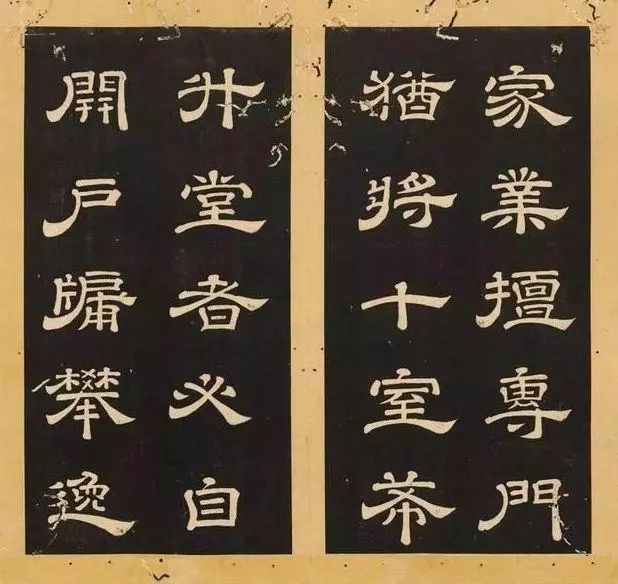 家業擅專門
猶將十室苐
升堂者必自
開戶牖攀逸